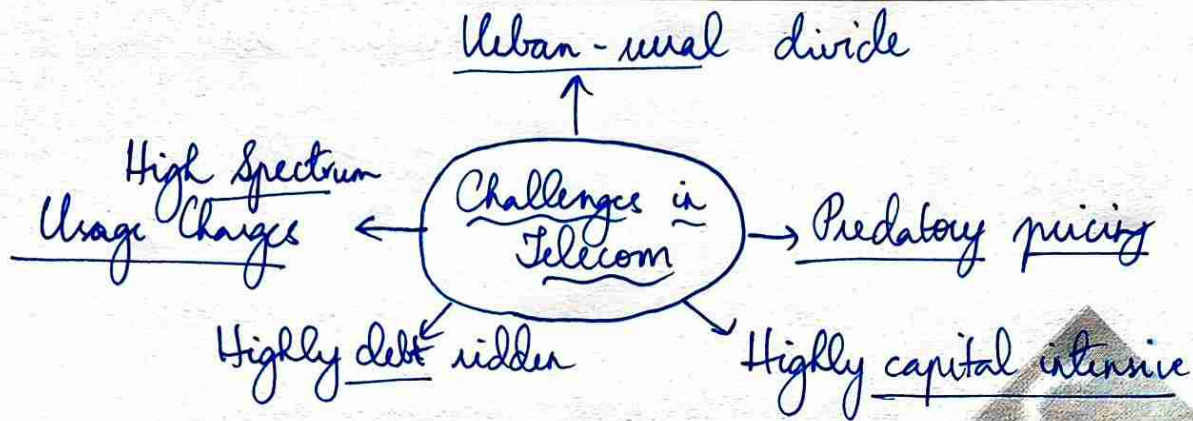 Urban-rural divide
High Spectrum
Usage Charges
Challenges in
Telecom
Predatory pricing
Highly debt ridden
Highly capital intensive